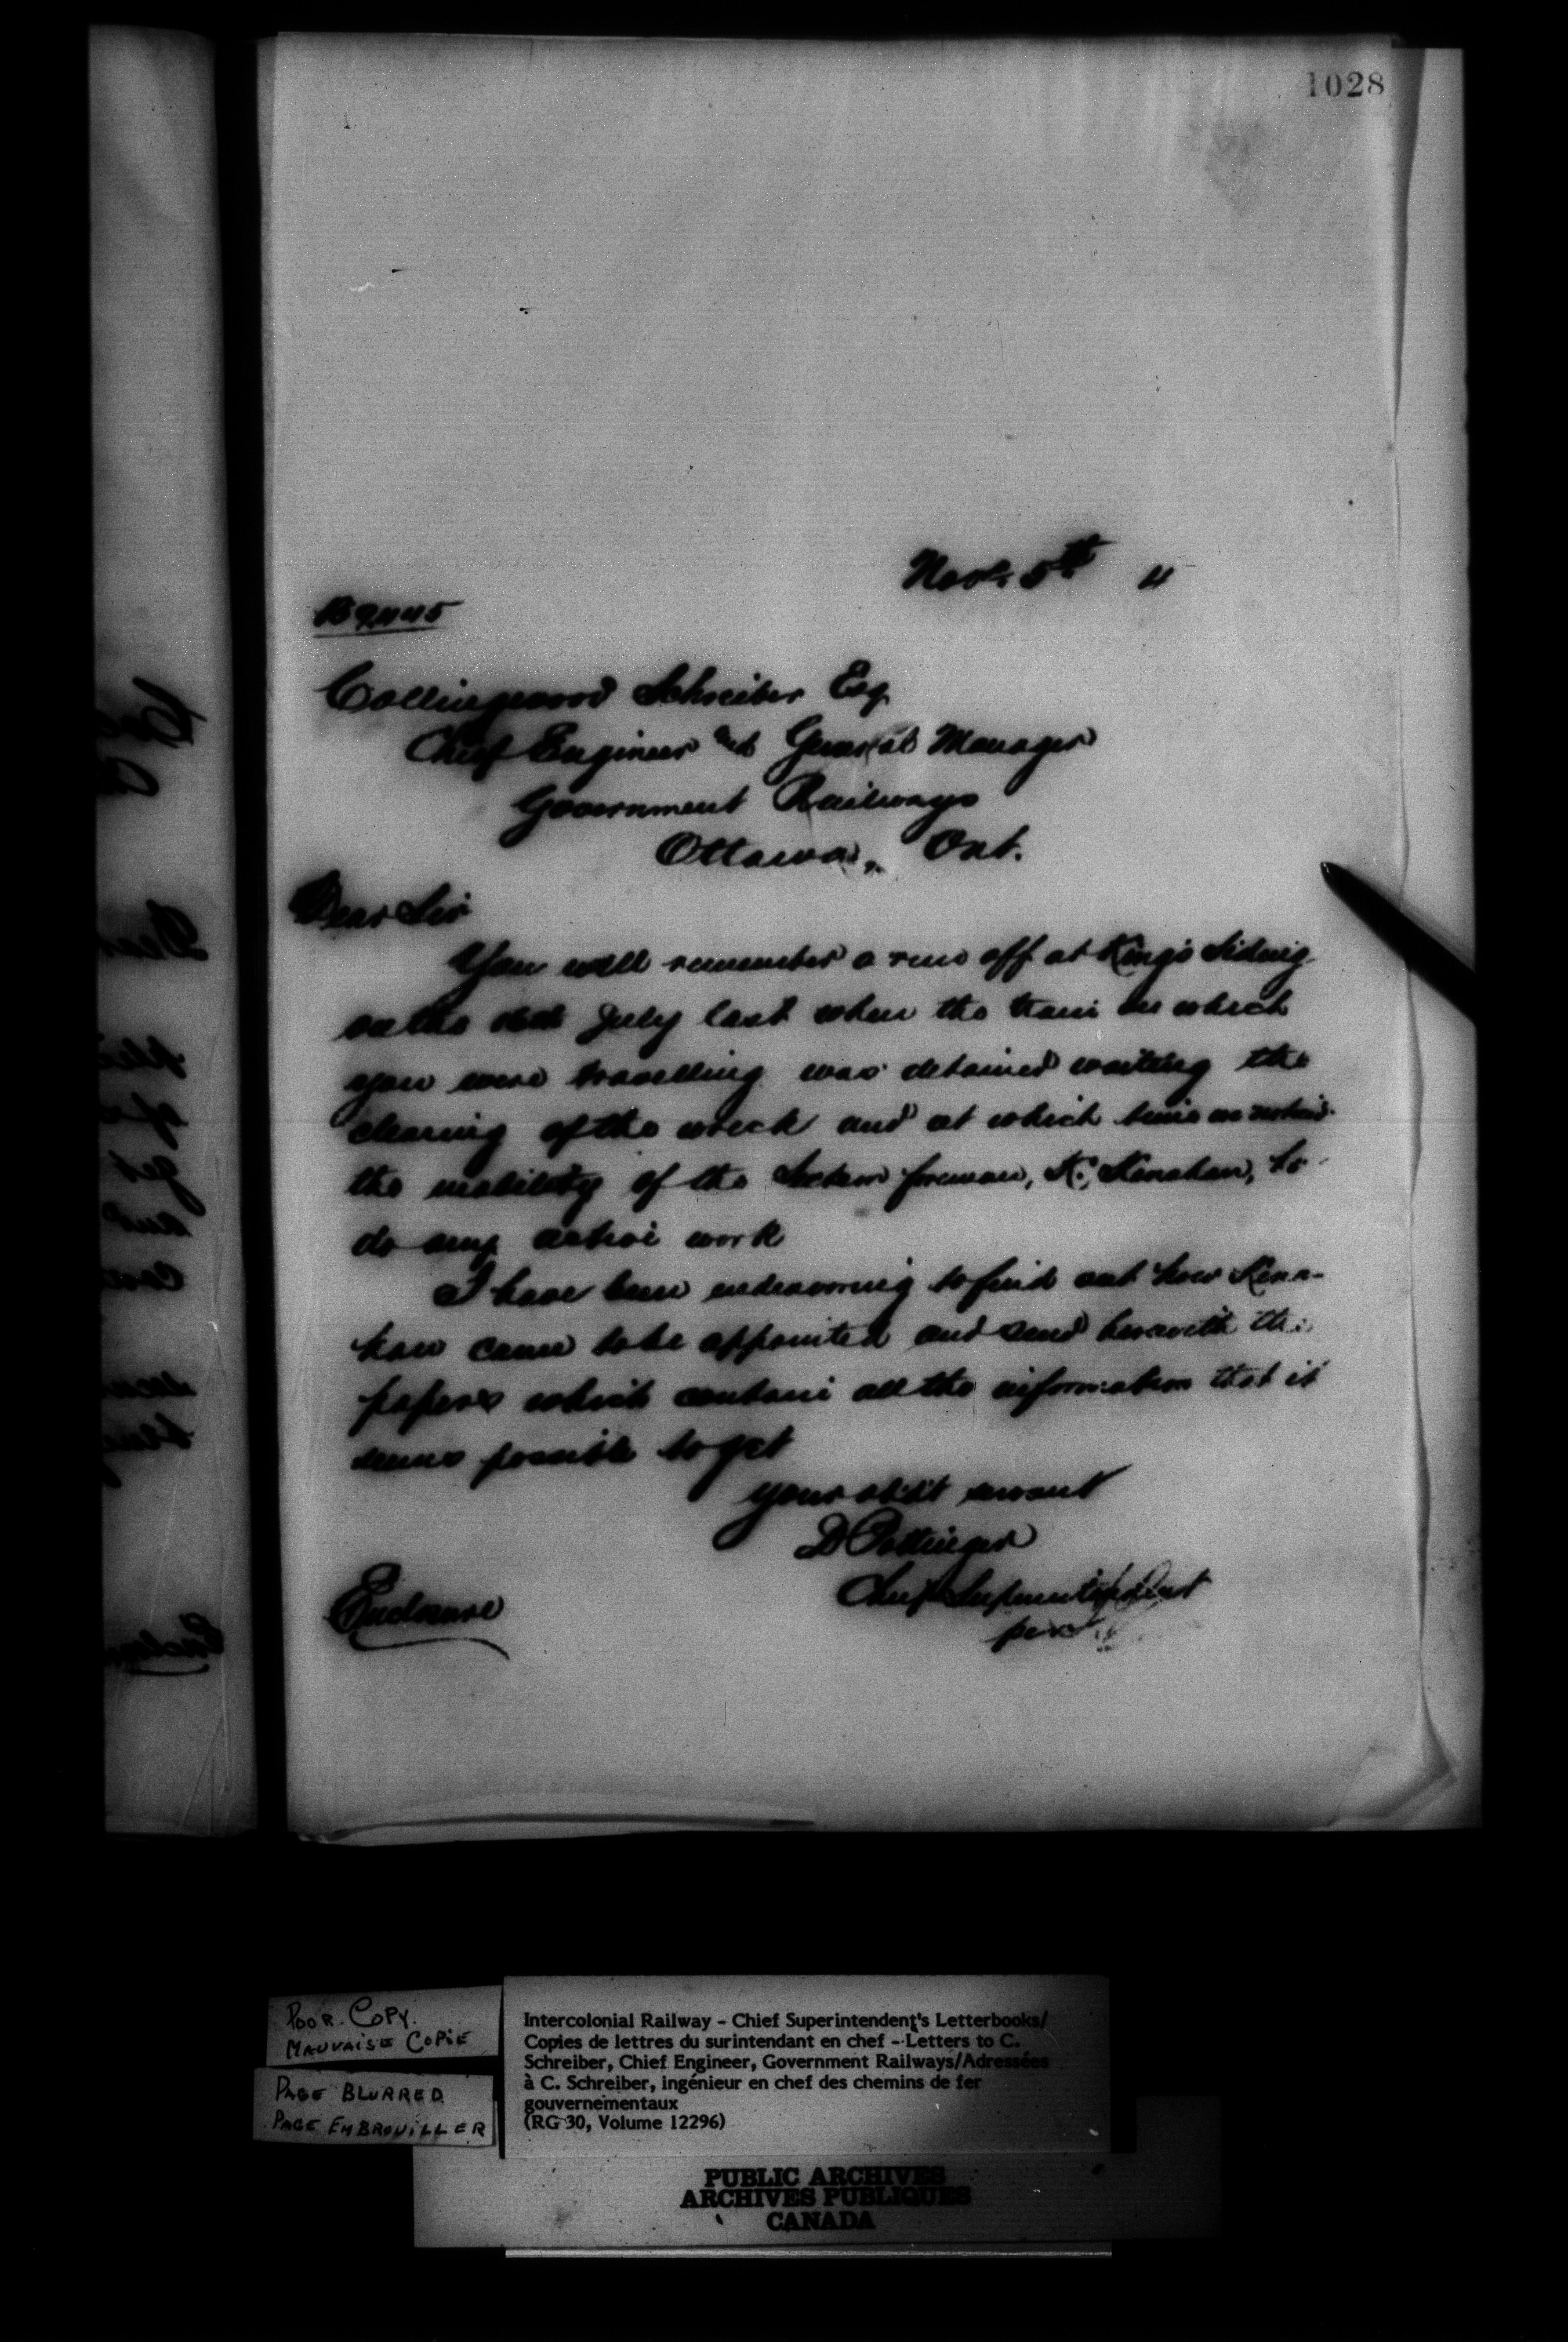 1028
Nov. 5th 4
Collingwood Schreiber Esq
Chief Engineer and General Manager
Government Railways
Ottawa, Ont.
Dear Sir
You will remember a run off at King's Siding
on the July last when the train on which
you were travelling was detained waiting the
clearing of the wreck and at which time we noticed
the inability of the Section foreman, K. Kenahan, to
do any active work
I have been endeavoring to find out how Kena-
han came to be appointed and send herewith the
papers which contain all the information that it
seems possible to get
your obdt servant
D Pottinger
Chief Superintendent
per
Enclosure
POOR COPY.
MAUVAISE COPIE
PAGE BLURRED
PAGE EMBROUILLER
Intercolonial Railway - Chief Superintendent's Letterbooks/
Copies de lettres du surintendant en chef - Letters to C.
Schreiber, Chief Engineer, Government Railways/Adressées
à C. Schreiber, ingénieur en chef des chemins de fer
gouvernementaux
(RG 30, Volume 12296)
PUBLIC ARCHIVES
ARCHIVES PUBLIQUES
CANADA